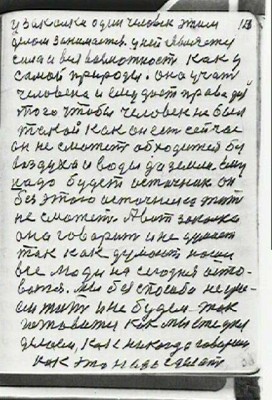 у закалка один человек этим 113
делом занимается. у ней является
сила и вся возможность как у
самой природы. она учит
человека и ему дает права для
того чтобы человек не был
такой как он есть сейчас
он не сможет обходится без
воздуха и воды да земли. ему
надо будет источник он
без этого источника жить
не сможет. А вот закалка
она говорит и не думает
так как думают наши
все люди на сегодня
мы без способа не
жить и не будем. так
как мы сегодня
делаем, как никогда
как это надо сделать